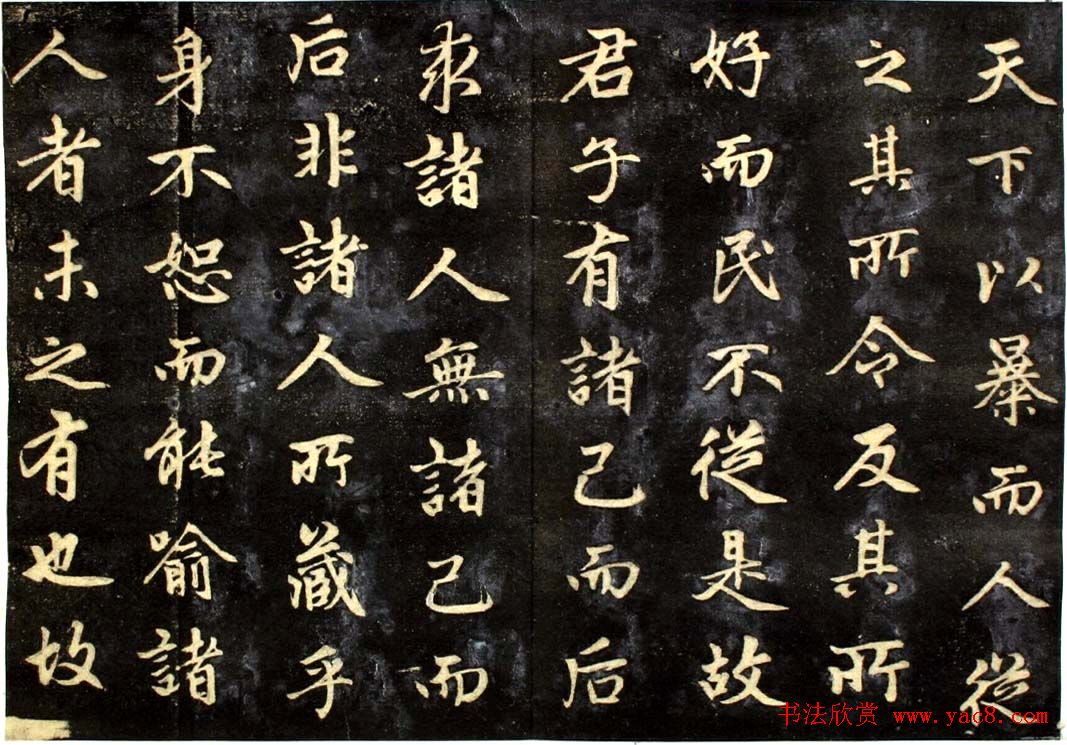 天下以暴而人從
之其所令反其所
好而民不從是故
君子有諸己而后
求諸人無諸己而
后非諸人所藏乎
身不恕而能喻諸
人者未之有也故
书法欣赏 www.yac8.com